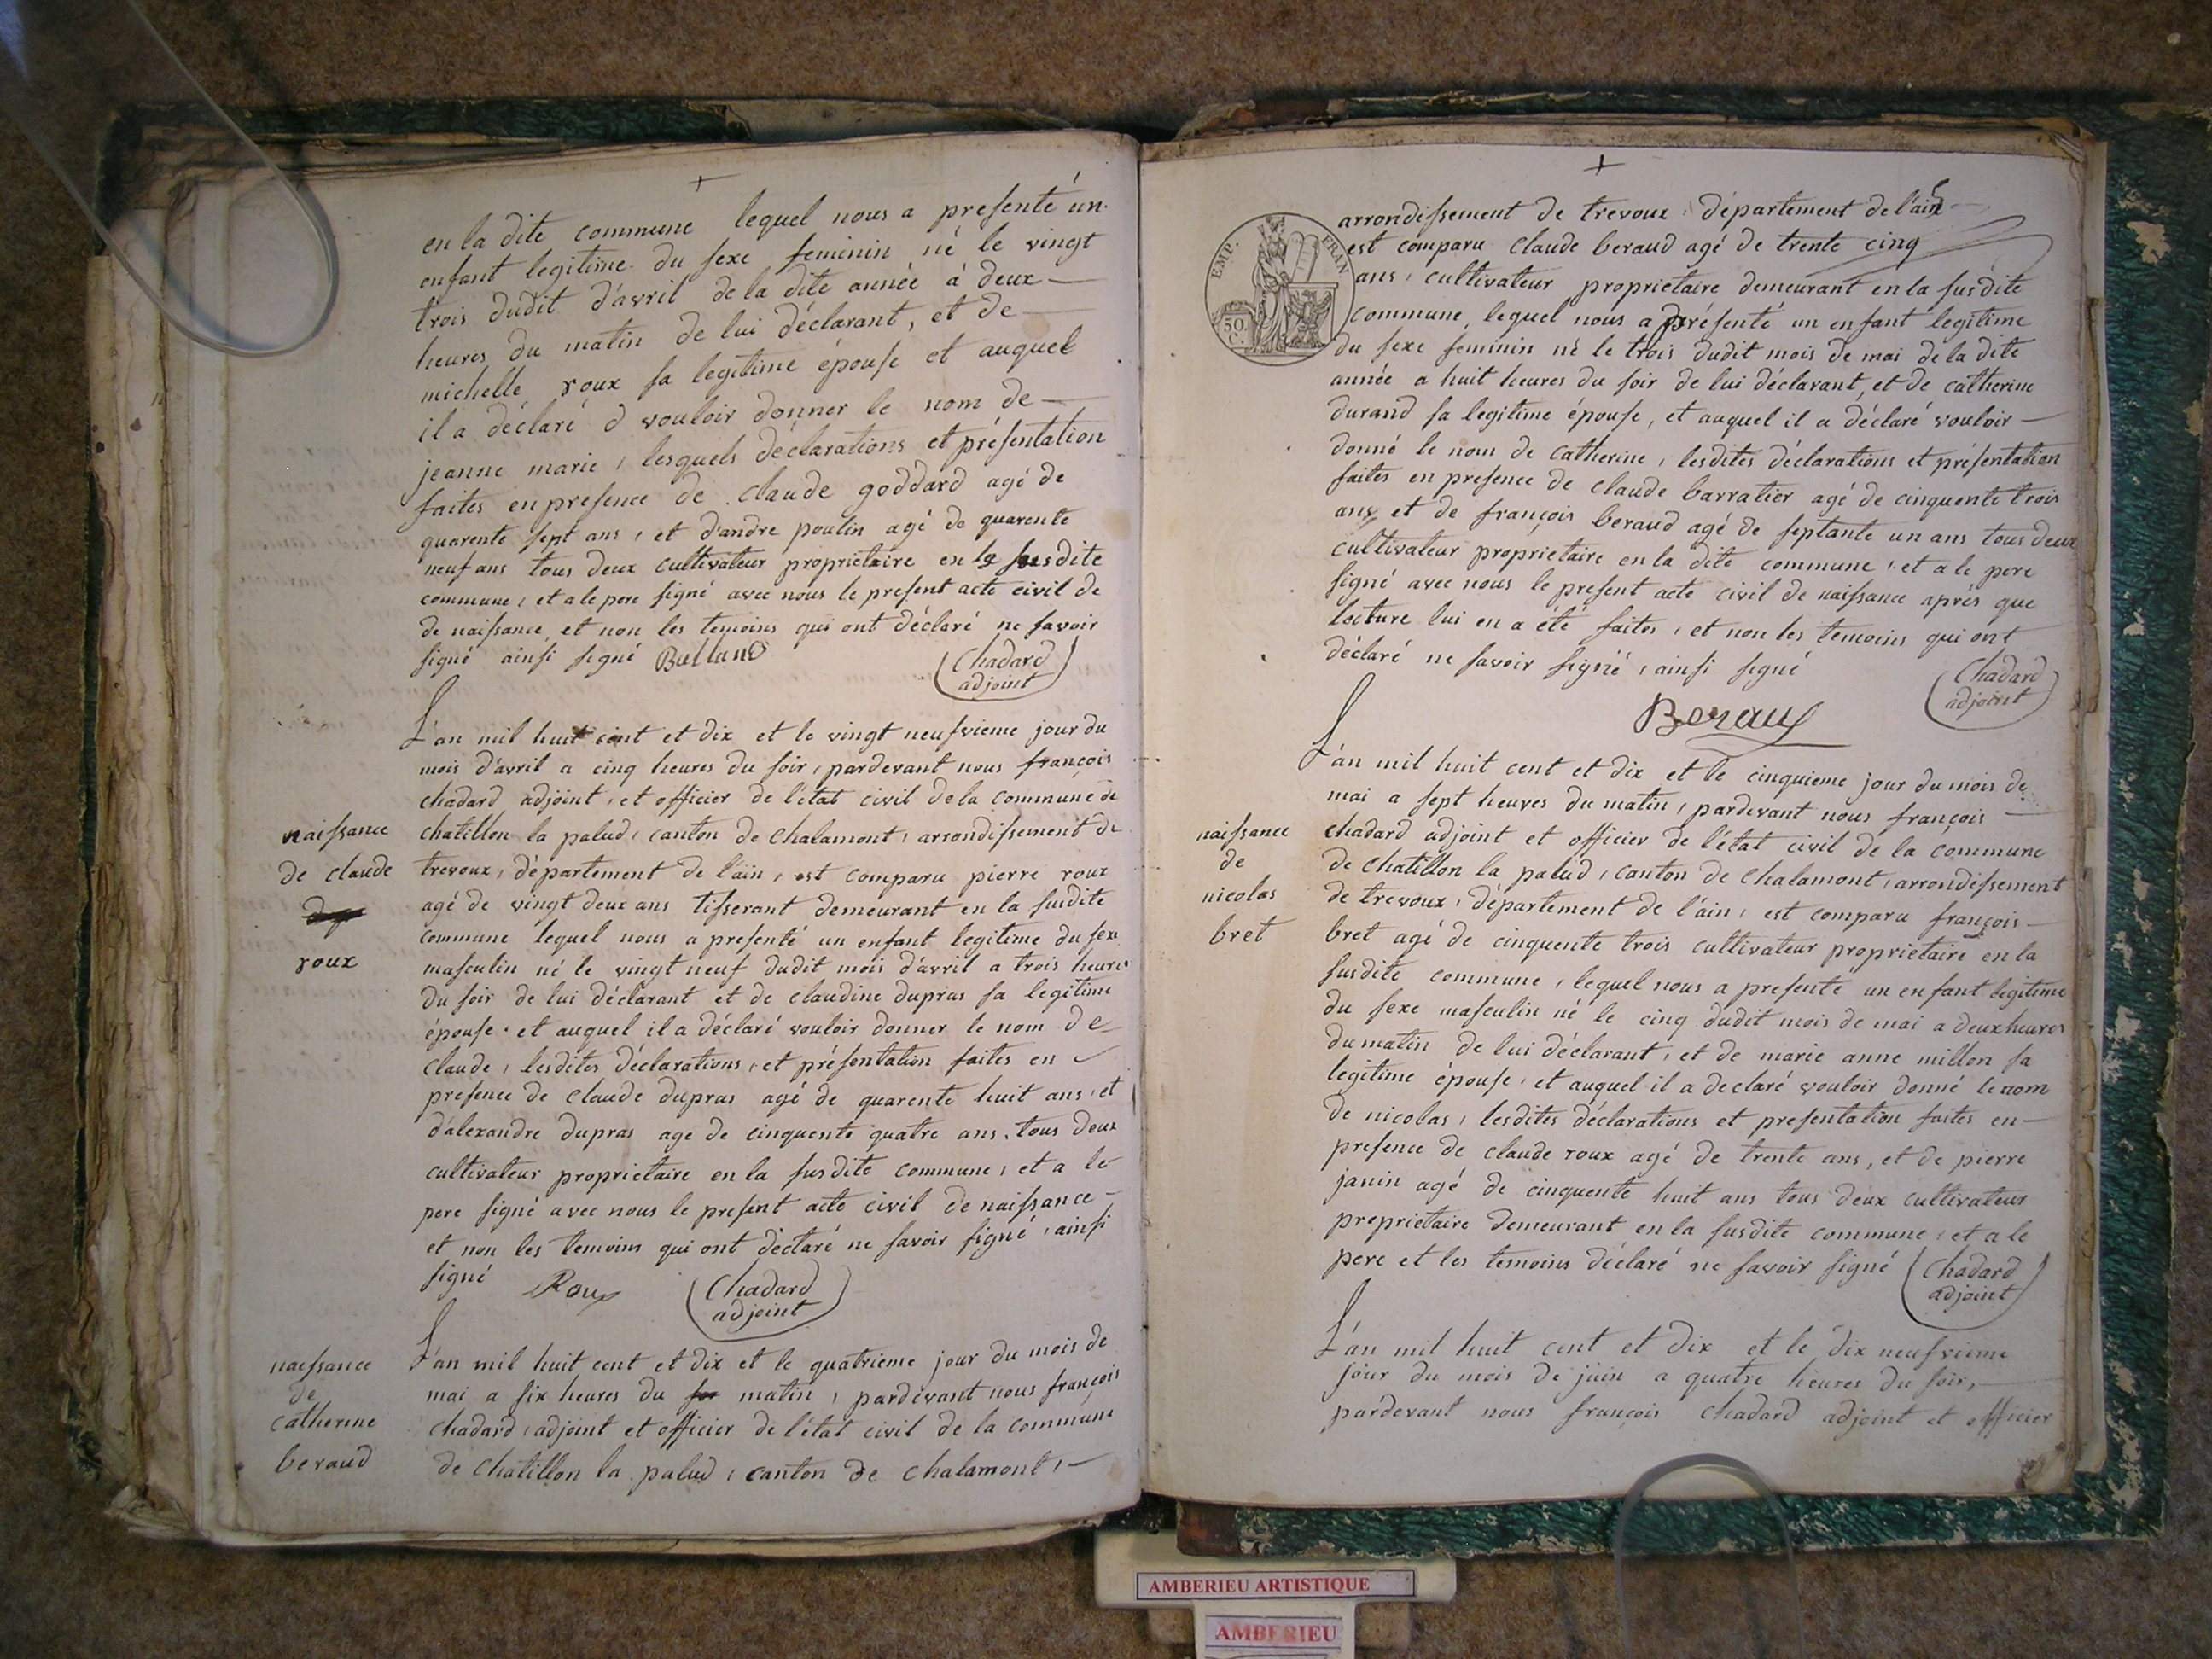 en la dite commune lequel nous a presenté un
enfant legitime du sexe feminin né le vingt
trois dudit d'avril de la dite année à deux
heures du matin de lui déclarant, et de
michelle roux sa legitime épouse et auquel
il a déclaré d vouloir donner le nom de
jeanne marie, lesquels déclarations et présentation
faites en presence de claude goddard agé de
quarente sept ans, et d'andre poulin agé de quarente
neuf ans tous deux cultivateur proprietaire en la susdite
commune, et a le pere signé avec nous le present acte civil de
de naissance et non les temoins qui ont déclaré ne savoir
signé ainsi signé
Chadard
adjoint
L'an mil huit cent et dix et le vingt neufvieme jour du
mois d'avril a cinq heures du soir, pardevant nous françois
chadard adjoint, et officier de l'état civil de la commune de
naissance
de claude
roux
chatillon la palud, canton de chalamont, arrondissement de
trevoux, département de l'ain, est comparu pierre roux
agé de vingt deux ans tisserant demeurant en la susdite
commune lequel nous a presenté un enfant legitime du sexe
masculin né le vingt neuf dudit mois d'avril a trois heures
du soir de lui déclarant et de claudine dupras sa legitime
épouse et auquel il a déclaré vouloir donner le nom de
claude, lesdites déclarations, et présentation faites en
presence de claude dupras agé de quarente huit ans, et
d'alexandre dupras age de cinquente quatre ans, tous deux
cultivateur proprietaire en la susdite commune, et a le
pere signé avec nous le present acte civil de naissance
et non les temoins qui ont déclaré ne savoir signé, ainsi
signé Roux
Chadard
adjoint
naissance
de
catherine
beraud
L'an mil huit cent et dix et le quatrieme jour du mois de
mai a six heures du matin, pardevant nous françois
chadard, adjoint et officier de l'état civil de la commune
de chatillon la palud, canton de chalamont,
EMP. FRAN
50.
C.
arrondissement de trevoux département de l'ain
est comparu claude beraud agé de trente cinq
ans, cultivateur proprietaire demeurant en la susdite
commune, lequel nous a présenté un enfant legitime
du sexe feminin né le trois dudit mois de mai de la dite
année a huit heures du soir de lui déclarant, et de catherine
durand sa legitime épouse, et auquel il a déclaré vouloir
donné le nom de catherine, lesdites déclarations et présentation
faites en presence de claude barratier agé de cinquente trois
ans et de françois beraud agé de septante un ans tous deux
cultivateur proprietaire en la dite commune, et a le pere
signé avec nous le present acte civil de naissance après que
lecture lui en a été faites, et non les temoins qui ont
déclaré ne savoir signé, ainsi signé
Chadard
adjoint
Beraud
L'an mil huit cent et dix et le cinquieme jour du mois de
mai a sept heures du matin, pardevant nous françois
naissance
de
nicolas
bret
chadard adjoint et officier de l'état civil de la commune
de chatillon la palud, canton de chalamont, arrondissement
de trevoux, département de l'ain, est comparu françois
bret agé de cinquente trois cultivateur proprietaire en la
susdite commune, lequel nous a presenté un enfant legitime
du sexe masculin né le cinq dudit mois de mai a deux heures
du matin de lui déclarant, et de marie anne millon sa
legitime épouse, et auquel il a declaré vouloir donné le nom
de nicolas, lesdites déclarations et presentation faites en
presence de claude roux agé de trente ans, et de pierre
janin agé de cinquente huit ans tous deux cultivateur
proprietaire demeurant en la susdite commune, et a le
pere et les temoins déclaré ne savoir signé
Chadard
adjoint
L'an mil huit cent et dix et le dix neufvieme
jour du mois de juin a quatre heures du soir,
pardevant nous françois chadard adjoint et officier
AMBERIEU ARTISTIQUE
AMBERIEU